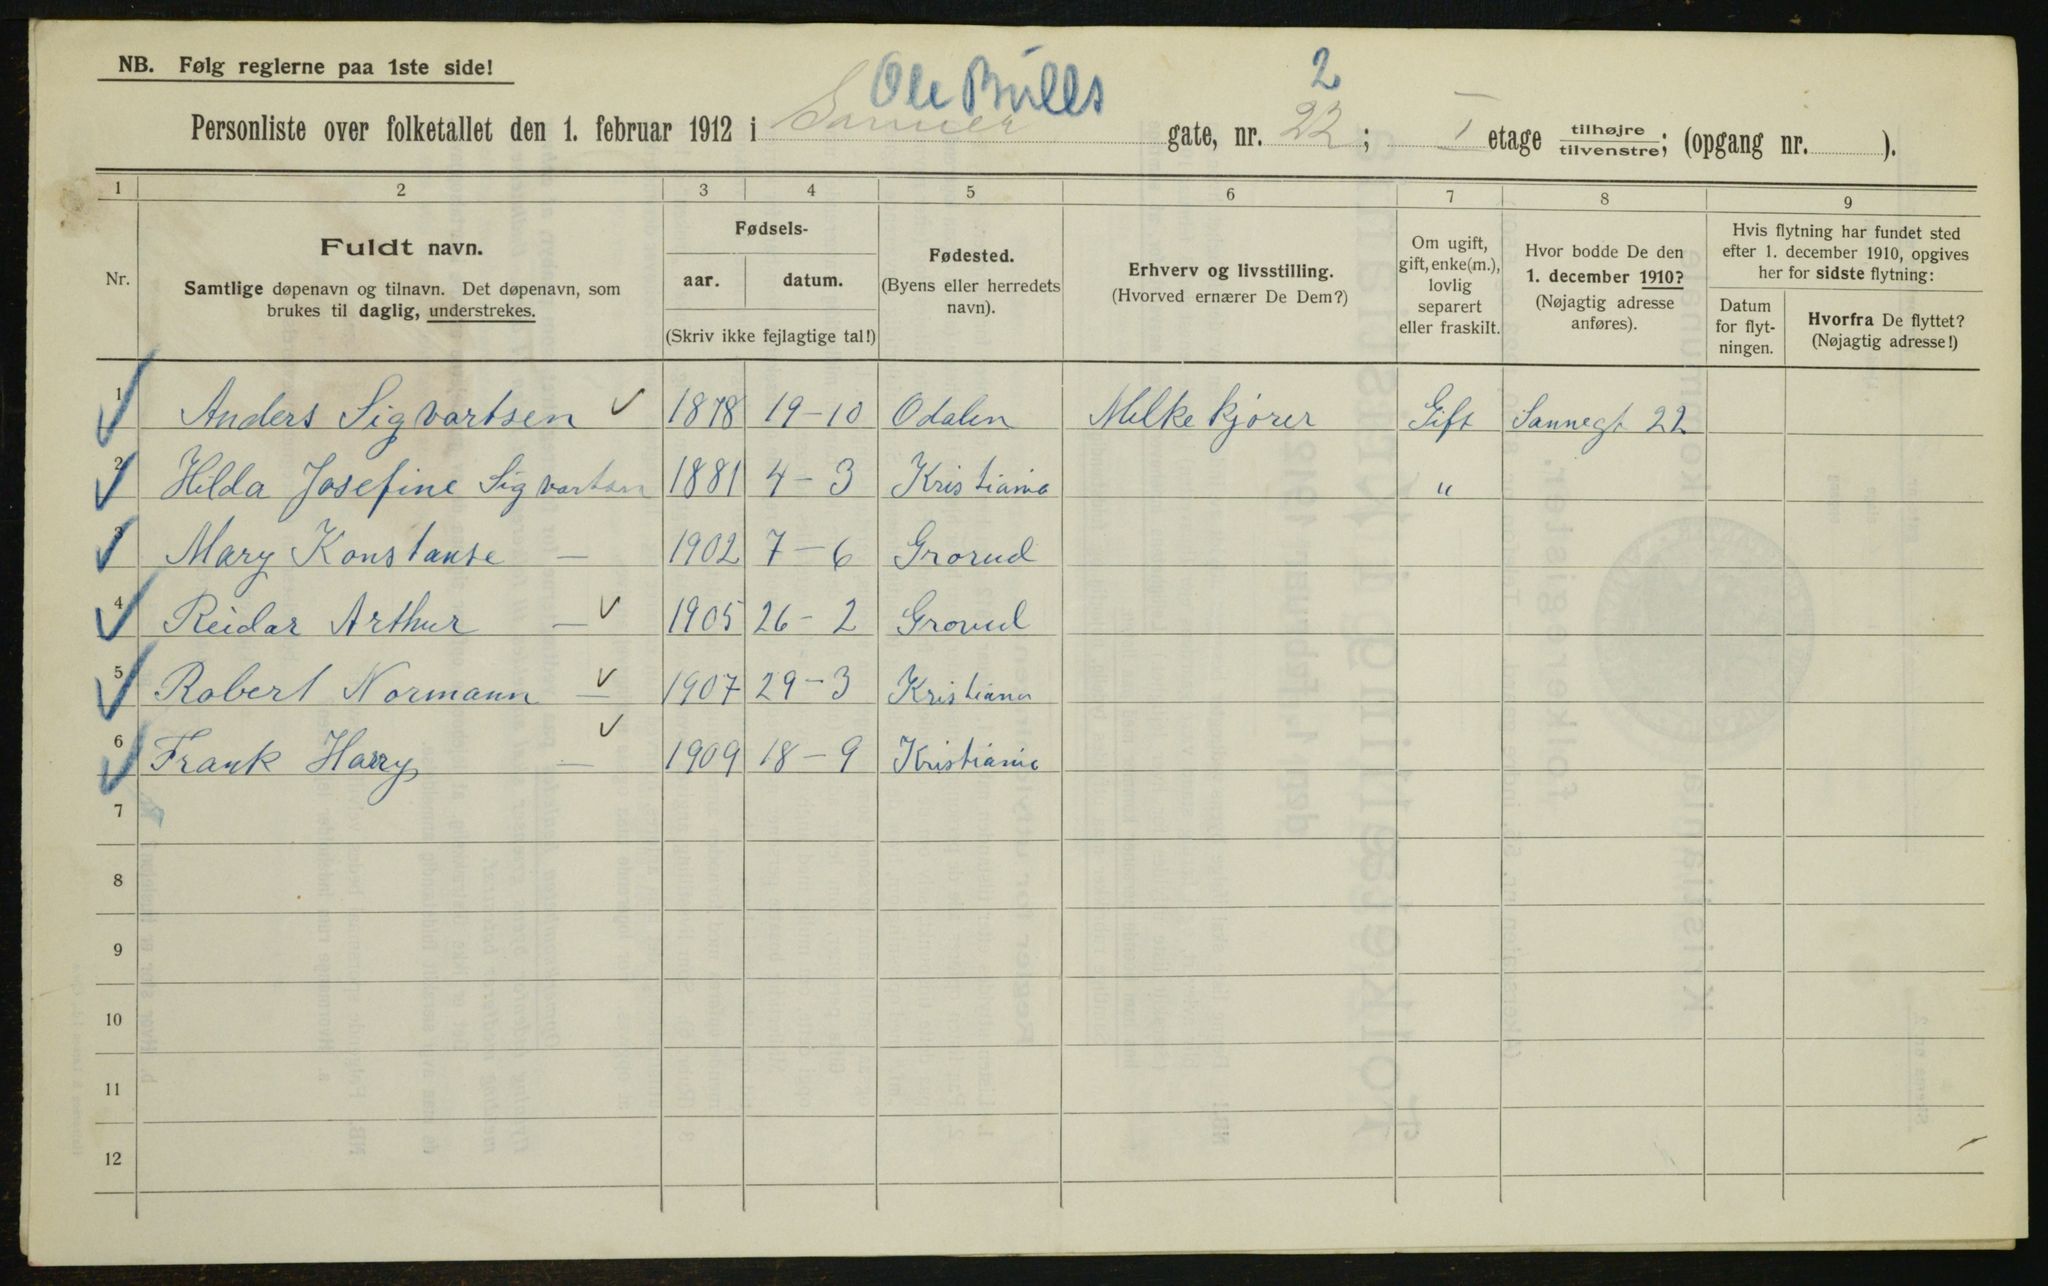 NB. Følg reglerne paa 1ste side!
Ole Bulls 2
Personliste over folketallet den 1. februar 1912 i Sanner gate, nr. 22; I etage tilhøjre/tilvenstre; (opgang nr. ).
1 2 3 4 5 6 7 8 9
Nr.
Fuldt navn.
Samtlige døpenavn og tilnavn. Det døpenavn, som
brukes til daglig, understrekes.
Fødsels-
aar. datum.
(Skriv ikke fejlagtige tal!)
Fødested.
(Byens eller herredets
navn).
Erhverv og livsstilling.
(Hvorved ernærer De Dem?)
Om ugift,
gift, enke(m.),
lovlig
separert
eller fraskilt.
Hvor bodde De den
1. december 1910?
(Nøjagtig adresse
anføres).
Hvis flytning har fundet sted
efter 1. december 1910, opgives
her for sidste flytning:
Datum
for flyt-
ningen.
Hvorfra De flyttet?
(Nøjagtig adresse!)
1 Anders Sigvartsen ✓ 1878 19-10 Odalen Melkekjører Gift Sannegt 22
2 Hilda Josefine Sigvartsen 1881 4-3 Kristiania "
3 Mary Konstanse — 1902 7-6 Grorud
4 Reidar Arthur — ✓ 1905 26-2 Grorud
5 Robert Normann — ✓ 1907 29-3 Kristiania
6 Frank Harry — ✓ 1909 18-9 Kristiania
7
8
9
10
11
12